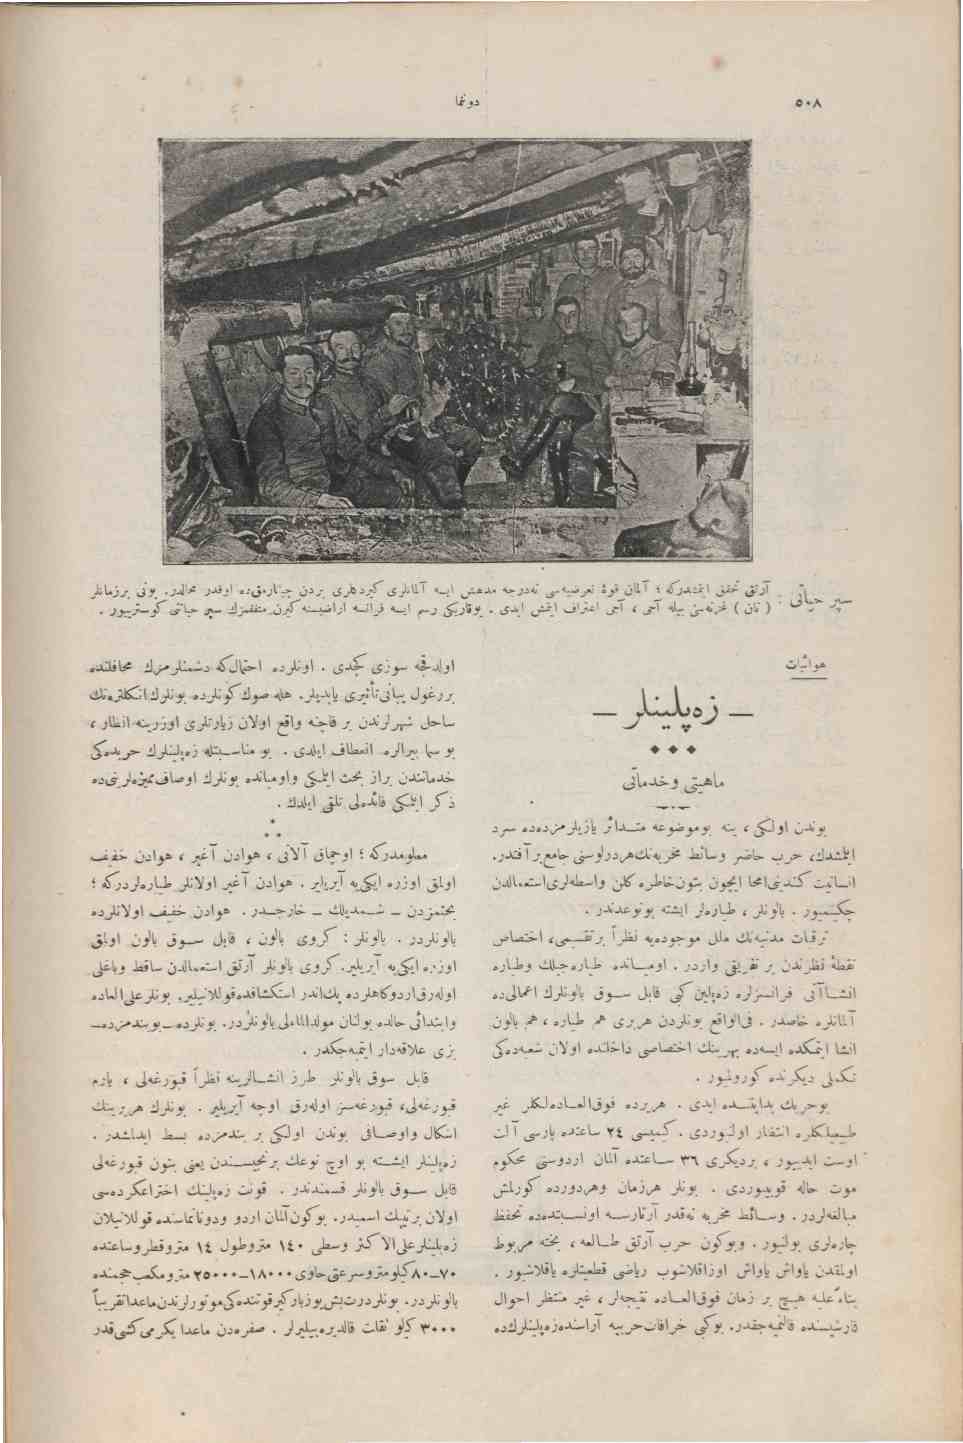 ٥٠٨
دونما
سپر حیاتی : آرتق تحقق ایتمشدرکه ؛ آلمان قوهٔ تعرضیه‌سی نه‌درجه مدهش ایسه آلمانلری کیردکلری یردن چیقارمق‌ده اوقدر محالدر. بونی برزمانلر
( تان ) غزته‌سی بیله آجی ، آجی اعتراف ایتمش ایدی . یوقاریکی رسم ایسه فرانسه اراضیسنه کیرن متفقمزک سپر حیاتنی کوستریيور .
هوائیات
— زه‌پلینلر —
ماهیتی وخدماتی
بوندن اولکی ، ینه بوموضوعه متدائر یازیلرمزده‌ده سرد
ایتمشدك، حرب حاضر وسائط مخربه‌نك‌هردرلوسنی جامع‌بر آفتدر.
انسانیت کندینی‌امحا ایچون بتون‌خاطره کلن واسطه‌لری‌استعمالدن
چکینمیور . بالونلر ، طیاره‌لر ایشته بونوعدندر .
ترقیات مدنیه‌نك ملل موجوده‌یه نظراً برتقسیمی، اختصاص
نقطهٔ نظرندن بر تفریقی واردر . اومیانده طیاره‌جیلك وطیاره
انشاآتی فرانسزلره زه‌پلین کبی قابل سوق بالونلرك اعمالی‌ده
آلمانلره خاصدر . فی‌الواقع بونلردن هربری هم طیاره ، هم بالون
انشا ایتمکده ایسه‌ده بهرینك اختصاصی داخلنده اولان شعبه‌ده‌کی
تکملی دیکرنده کورولمیور .
بوحربك بدایتنده ایدی . هریرده فوق‌العاده‌لکلر غیر
طبیعیلکلره انتظار اولنیوردی . کیمیسی ٢٤ ساعتده پارسی آلت
اوست ایدییور ، بردیکری ٣٦ ساعتده آلمان اردوسنی محکوم
موت حاله قویییوردی . بونلر هرزمان وهردورده کورلمش
مبالغه‌لردر . وسائط مخربه نه‌قدر آرتارسه اونسبتده‌ده تحفظ
چاره‌لری بولنیور . وبوکون حرب آرتق طالعه ، بخته مربوط
اولمقدن یاواش یاواش اوزاقلاشوب ریاضی قطعیتلره یاقلاشیور .
بناءً علیه هیچ بر زمان فوق‌العاده نتیجه‌لر ، غیر منتظر احوال
قارشیسنده قالنمیه‌جقدر. بوکبی خرافات‌حربیه آراسنده‌زه‌پلینلرك‌ده
اولدقجه سوزی کچدی . اونلرده احتمال‌که دشمنلرمزك محافلنده
بررغول یبانی‌تأثیری یاپدیلر. هله صوك کونلرده بونلرك‌انکلتره‌نك
ساحل شهرلرندن بر قاچنه واقع اولان زیارتلری اوزرینه انظار ،
بو سما پیرالره انعطاف ایلدی . بو مناسبتله زه‌پلینلرك حربده‌کی
خدماتندن براز بحث ایتمکی واومیانده بونلرك اوصاف ممیزه‌لرینی‌ده
ذکر ایتمکی فائده‌لی تلقی ایلدك .
معلومدرکه ؛ اوچماق آلاتی ، هوادن آغیر ، هوادن خفیف
اولمق اوزره ایکی‌یه آیریلیر . هوادن آغیر اولانلر طیاره‌لردرکه ؛
بحثمزدن — شمدیلك — خارجدر. هوادن خفیف اولانلرده
بالونلردر . بالونلر : کروی بالون ، قابل سوق بالون اولمق
اوزره ایکی‌یه آیریلیر. کروی بالونلر آرتق استعمالدن ساقط وباغلی
اوله‌رق‌اردوکاهلرده پك‌اندر استکشافده‌قوللانیلیر. بونلرعلی‌العاده
وابتدائی حالده بولنان مولدالماءلی‌بالونلردر. بونلرده—بوبندمزده—
بزی علاقه‌دار ایتمیه‌جکدر .
قابل سوق بالونلر طرز انشالرینه نظراً قبورغه‌لی ، یارم
قبورغه‌لی، قبورغه‌سز اوله‌رق اوچه آیریلیر . بونلرك هربرینك
اشکال واوصافی بوندن اولکی بر بندمزده بسط ایدلمشدر .
زه‌پلینلر ایشته بو اوچ نوعك برنجیسندن یعنی بتون قبورغه‌لی
قابل سوق بالونلر قسمندندر . قونت زه‌پلینك اختراعکرده‌سی
اولان برتیپك اسمیدر. بوکون‌آلمان اردو ودونانماسنده قوللانیلان
زه‌پلینلرعلی‌الاکثر وسطی ١٤٠ مترو‌طول ١٤ متروقطر وساعتده
٧٠—٨٠کیلومترو سرعتی حاوی ١٨٠٠٠—٢٥٠٠٠ مترومکعب حجمنده
بالونلردر. بونلردرت‌بش‌یوزبارکیرقوتنده‌کی‌موتورلرندن‌ماعداتقریباً
٣٠٠٠ کیلو ثقلت قالدیره‌بیلیرلر . صفره‌دن ماعدا یکرمی کشی‌قدر